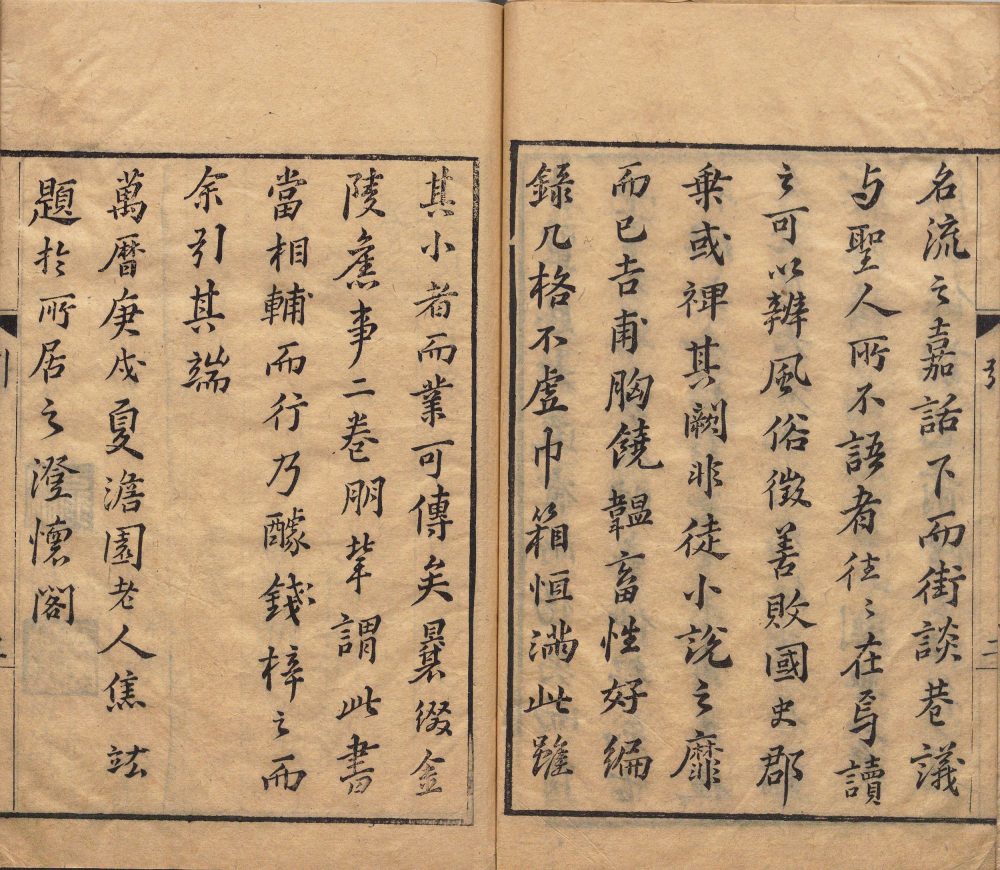 名流之嘉話下而街談巷議
与聖人所不語者往〻在焉讀
之可以辨風俗徵善敗國史郡
乗或禆其闕非徒小說之靡
而已吉甫胸饒韞畜性好編
錄几格不虛巾箱恒滿此雖
引
二
其小者而業可傳矣曩綴金
陵舊事二卷朋軰謂此書
當相輔而行乃醵錢梓之而
余引其端
萬曆庚戌夏澹園老人焦竑
題於所居之澄懷閣